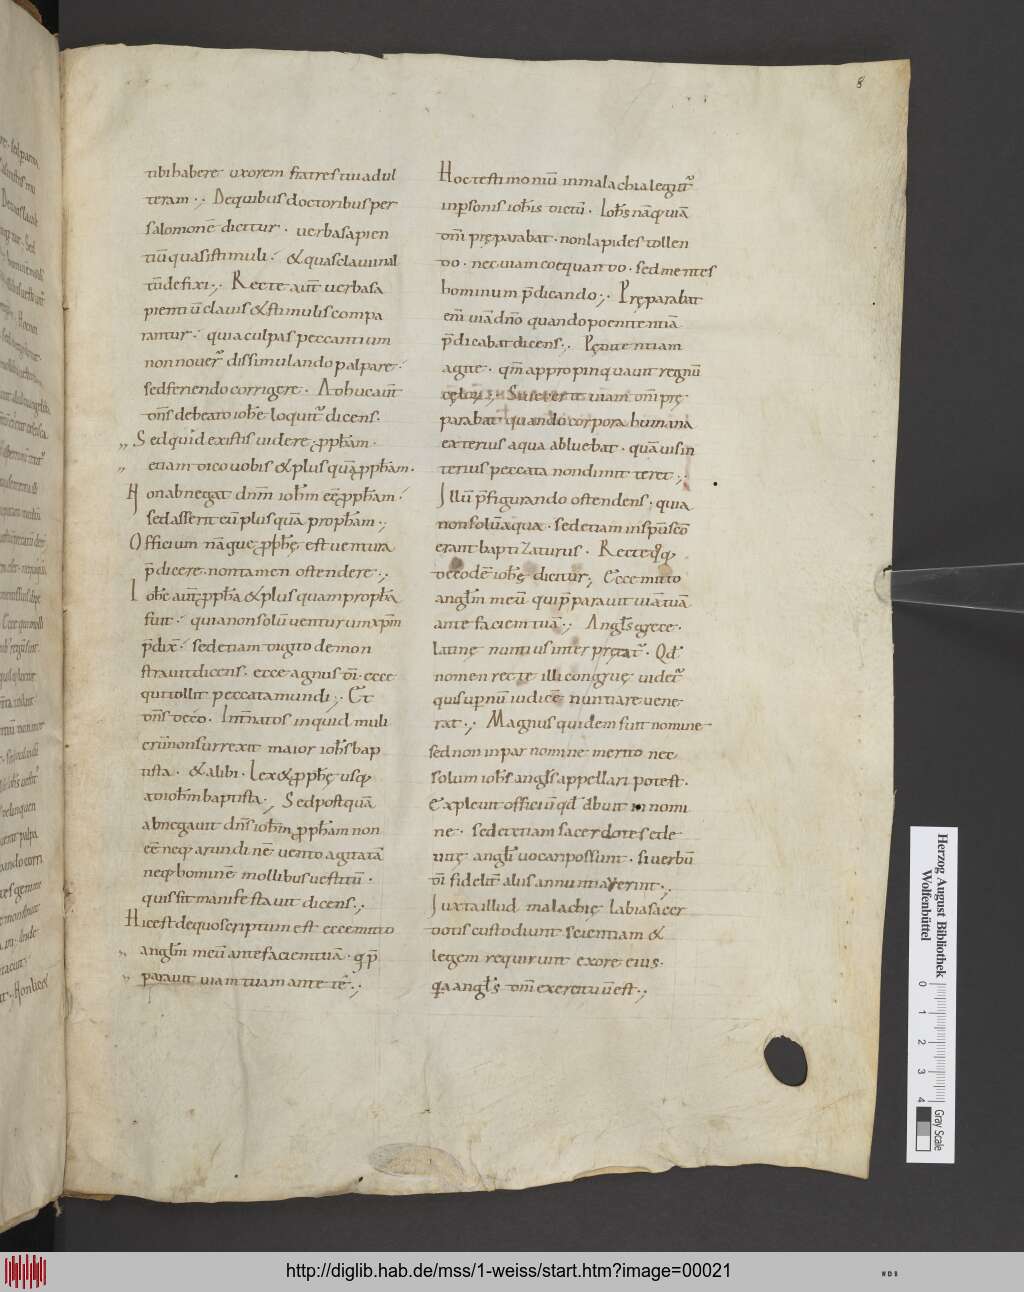 8
tibi habere uxorem fratris tui adul
teram ·, Dequibus doctoribus per
salomonē dicitur · verba sapien
tiū quasi stimuli · & quasi claui inal
tū defixi ·, Recte aūt verba sa
pientiū clauis & stimulis compa
rantur · quia culpas peccantium
non nouer̄ dissimulando palpare ·
sed feriendo corrigere · Adhuc aūt
dn̄s de beato ioh̄e loquit̄ dicens ·
„ Sed quid existis uidere, ꝓph̄am ·
„ etiam dico uobis & plus quā ꝓph̄am ·
Non abnegat dn̄m ioh̄m eē ꝓph̄am ·
sed asserit eū plus quā proph̄am ·,
Officium nāque ꝓph̄ę est uentura
p̄dicere · non tamen ostendere ·,
Ioh̄s aūt ꝓph̄a & plus quam proph̄a
fuit · quia non solū uenturum xp̄m
p̄dix̄ · sed etiam digito demon
strauit dicens · ecce agnus dī · ecce
qui tollit peccata mundi ·, Et
dn̄s de eo · Int̄ natos inquid muli
erū non surrexit maior ioh̄s bap
tista · & alibi · Lex & ꝓph̄ę usq;
ad ioh̄m baptista ·, Sed postquā
abnegauit dn̄s ioh̄m ꝓph̄am non
eē neq; arundinē uento agitatā
neq; hominē mollibus uestitū ·
quis sit manifestauit dicens ·,
Hic est de quo scriptum est ecce mitto
„ angl̄m meū ante faciem tuā · q p̄
„ parauit uiam tuam ante te ·,
Hoc testimoniū in malachia legit̄
in p̄sonis ioh̄is dictū · Ioh̄s nāq; uiā
dn̄i pręparabat · non lapides tollen
do · nec uiam coequando · sed mentes
hominum p̄dicando ·, Pręparabat
eni uiā dn̄o quando poenitentiā
p̄dicabat dicens ·, Pęnitentiam
agite · qm̄ appropinquauit regnū
cęlorū ·, Siue certe uiam dn̄i prę
parabat quando corpora humana
exterius aqua abluebat · quā uis in
terius peccata non dimitteret ·,
Illū p̄figurando ostendens · quia
non solū aqua · sed etiam in sp̄u sc̄o
erant baptizaturus · Recte q̊q;
de eodē ioh̄ę dicitur, Ecce mitto
angl̄m meū qui p̄parauit uiā tuā
ante faciem tuā ·, Angl̄s grece ·
latine nuntius interprętat̄ · Qd̄
nomen recte illi congruę uidet̄
qui sup̄nū iudicē nuntiare uene
rat ·, Magnus quidem fuit nomine
sed non inpar nomine merito nec
solum ioh̄s angl̄s appellari potest ·
Expleuit officiū qd̄ habuit in nomi
ne · sed etiam sacerdotes et le
uitę angl̄i uocari possunt · si uerbū
dī fidelit̄ aliis annuntiauerint ·,
Iuxta illud malachię labia sacer
dotis custodiunt scientiam &
legem requirunt ex ore eius ·
q̄a angl̄s dn̄i exercituū est ·,
Herzog August Bibliothek
Wolfenbüttel
0 1 2 3 4
Gray Scale
http://diglib.hab.de/mss/1-weiss/start.htm?image=00021